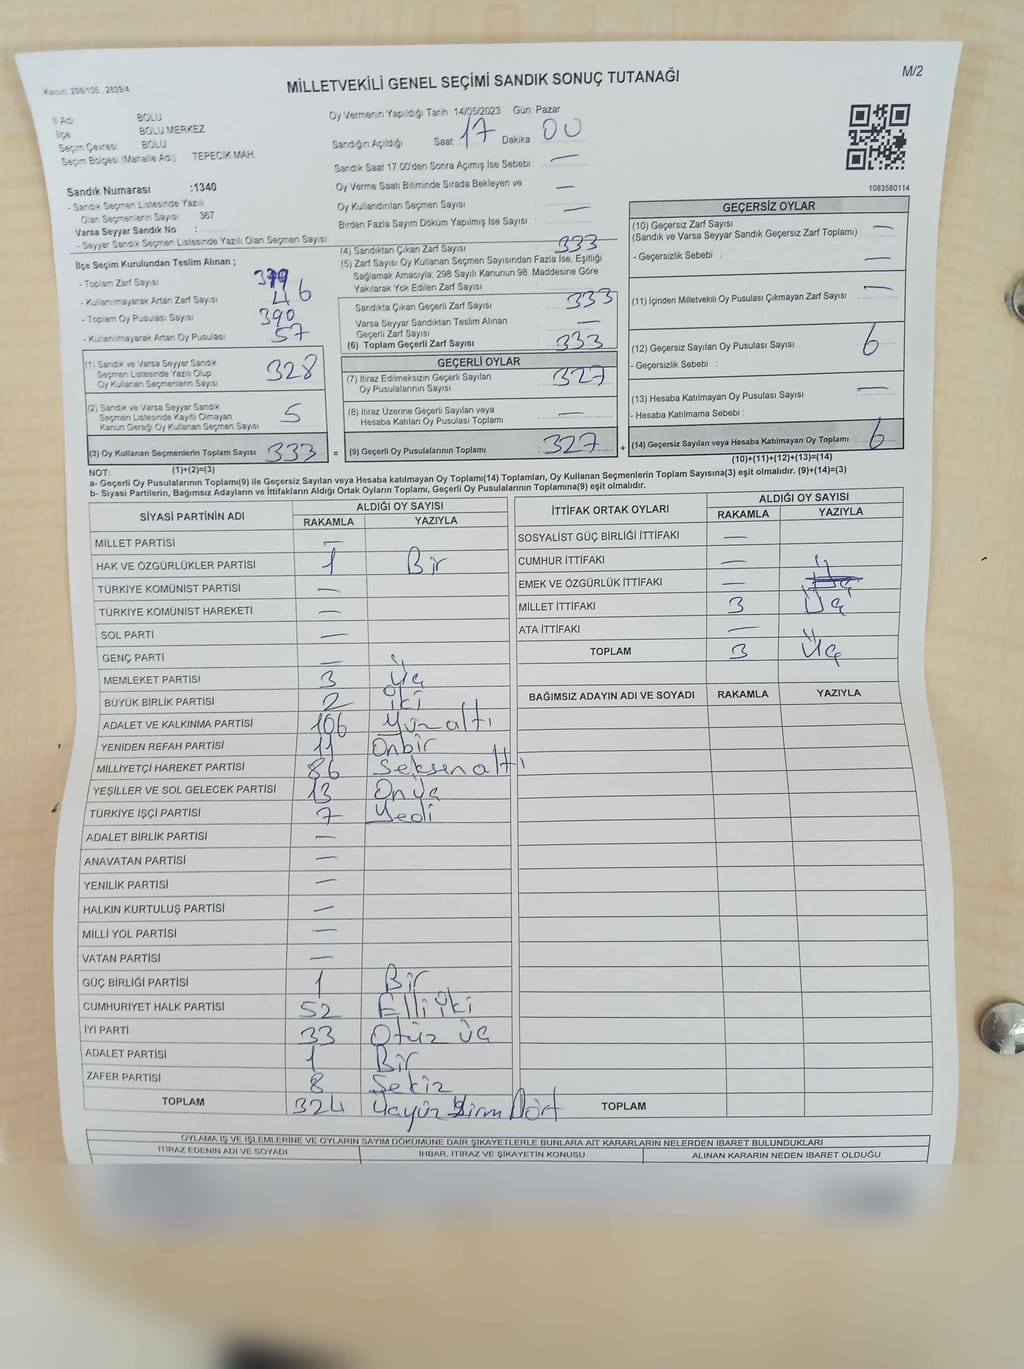 Kanun: 298/105 , 2839/4
MİLLETVEKİLİ GENEL SEÇİMİ SANDIK SONUÇ TUTANAĞI
M/2
İl Adı BOLU
İlçe BOLU MERKEZ
Seçim Çevresi BOLU
Seçim Bölgesi (Mahalle Adı) TEPECİK MAH.
Oy Vermenin Yapıldığı Tarih 14/05/2023 Gün: Pazar
Sandığın Açıldığı Saat 17 Dakika 00
Sandık Saat 17.00'den Sonra Açılmış İse Sebebi : —
Oy Verme Saati Bitiminde Sırada Bekleyen ve —
Oy Kullandırılan Seçmen Sayısı : —
Birden Fazla Sayım Döküm Yapılmış İse Sayısı :
1083580114
Sandık Numarası :1340
- Sandık Seçmen Listesinde Yazılı
Olan Seçmenlerin Sayısı 367
Varsa Seyyar Sandık No :
- Seyyar Sandık Seçmen Listesinde Yazılı Olan Seçmen Sayısı:
İlçe Seçim Kurulundan Teslim Alınan ;
- Toplam Zarf Sayısı
- Kullanılmayarak Artan Zarf Sayısı 46
- Toplam Oy Pusulası Sayısı 390
- Kullanılmayarak Artan Oy Pusulası 57
(1) Sandık ve Varsa Seyyar Sandık
Seçmen Listesinde Yazılı Olup
Oy Kullanan Seçmenlerin Sayısı 328
(2) Sandık ve Varsa Seyyar Sandık
Seçmen Listesinde Kayıtlı Olmayan
Kanun Gereği Oy Kullanan Seçmen Sayısı 5
(3) Oy Kullanan Seçmenlerin Toplam Sayısı 333 =
(4) Sandıktan Çıkan Zarf Sayısı 333
(5) Zarf Sayısı Oy Kullanan Seçmen Sayısından Fazla İse, Eşitliği
Sağlamak Amacıyla; 298 Sayılı Kanunun 98. Maddesine Göre
Yakılarak Yok Edilen Zarf Sayısı :
Sandıkta Çıkan Geçerli Zarf Sayısı 333
Varsa Seyyar Sandıktan Teslim Alınan
Geçerli Zarf Sayısı —
(6) Toplam Geçerli Zarf Sayısı 333
GEÇERLİ OYLAR
(7) İtiraz Edilmeksizin Geçerli Sayılan
Oy Pusulalarının Sayısı 327
(8) İtiraz Üzerine Geçerli Sayılan veya
Hesaba Katılan Oy Pusulası Toplamı —
(9) Geçerli Oy Pusulalarının Toplamı 327 +
GEÇERSİZ OYLAR
(10) Geçersiz Zarf Sayısı
(Sandık ve Varsa Seyyar Sandık Geçersiz Zarf Toplamı) —
- Geçersizlik Sebebi : —
(11) İçinden Milletvekili Oy Pusulası Çıkmayan Zarf Sayısı —
(12) Geçersiz Sayılan Oy Pusulası Sayısı 6
- Geçersizlik Sebebi :
(13) Hesaba Katılmayan Oy Pusulası Sayısı —
- Hesaba Katılmama Sebebi :
(14) Geçersiz Sayılan veya Hesaba Katılmayan Oy Toplamı : 6
NOT: (1)+(2)=(3)
(10)+(11)+(12)+(13)=(14)
a- Geçerli Oy Pusulalarının Toplamı(9) ile Geçersiz Sayılan veya Hesaba katılmayan Oy Toplamı(14) Toplamları, Oy Kullanan Seçmenlerin Toplam Sayısına(3) eşit olmalıdır. (9)+(14)=(3)
b- Siyasi Partilerin, Bağımsız Adayların ve İttifakların Aldığı Ortak Oyların Toplamı, Geçerli Oy Pusulalarının Toplamına(9) eşit olmalıdır.
SİYASİ PARTİNİN ADI ALDIĞI OY SAYISI
RAKAMLA YAZIYLA
MİLLET PARTİSİ —
HAK VE ÖZGÜRLÜKLER PARTİSİ 1 Bir
TÜRKİYE KOMÜNİST PARTİSİ —
TÜRKİYE KOMÜNİST HAREKETİ —
SOL PARTİ —
GENÇ PARTİ —
MEMLEKET PARTİSİ 3 Üç
BÜYÜK BİRLİK PARTİSİ 2 İki
ADALET VE KALKINMA PARTİSİ 106 Yüz altı
YENİDEN REFAH PARTİSİ 11 Onbir
MİLLİYETÇİ HAREKET PARTİSİ 86 Seksen altı
YEŞİLLER VE SOL GELECEK PARTİSİ 13 Onüç
TÜRKİYE İŞÇİ PARTİSİ 7 Yedi
ADALET BİRLİK PARTİSİ —
ANAVATAN PARTİSİ —
YENİLİK PARTİSİ —
HALKIN KURTULUŞ PARTİSİ —
MİLLİ YOL PARTİSİ —
VATAN PARTİSİ —
GÜÇ BİRLİĞİ PARTİSİ 1 Bir
CUMHURİYET HALK PARTİSİ 52 Elli iki
İYİ PARTİ 33 Otüz üç
ADALET PARTİSİ 1 Bir
ZAFER PARTİSİ 8 Sekiz
TOPLAM 324 Dört
İTTİFAK ORTAK OYLARI ALDIĞI OY SAYISI
RAKAMLA YAZIYLA
SOSYALİST GÜÇ BİRLİĞİ İTTİFAKI —
CUMHUR İTTİFAKI —
EMEK VE ÖZGÜRLÜK İTTİFAKI —
MİLLET İTTİFAKI 3 Üç
ATA İTTİFAKI —
TOPLAM 3 Üç
BAĞIMSIZ ADAYIN ADI VE SOYADI RAKAMLA YAZIYLA
TOPLAM
OYLAMA İŞ VE İŞLEMLERİNE VE OYLARIN SAYIM DÖKÜMÜNE DAİR ŞİKAYETLERLE BUNLARA AİT KARARLARIN NELERDEN İBARET BULUNDUKLARI
İTİRAZ EDENİN ADI VE SOYADI İHBAR, İTİRAZ VE ŞİKAYETİN KONUSU ALINAN KARARIN NEDEN İBARET OLDUĞU